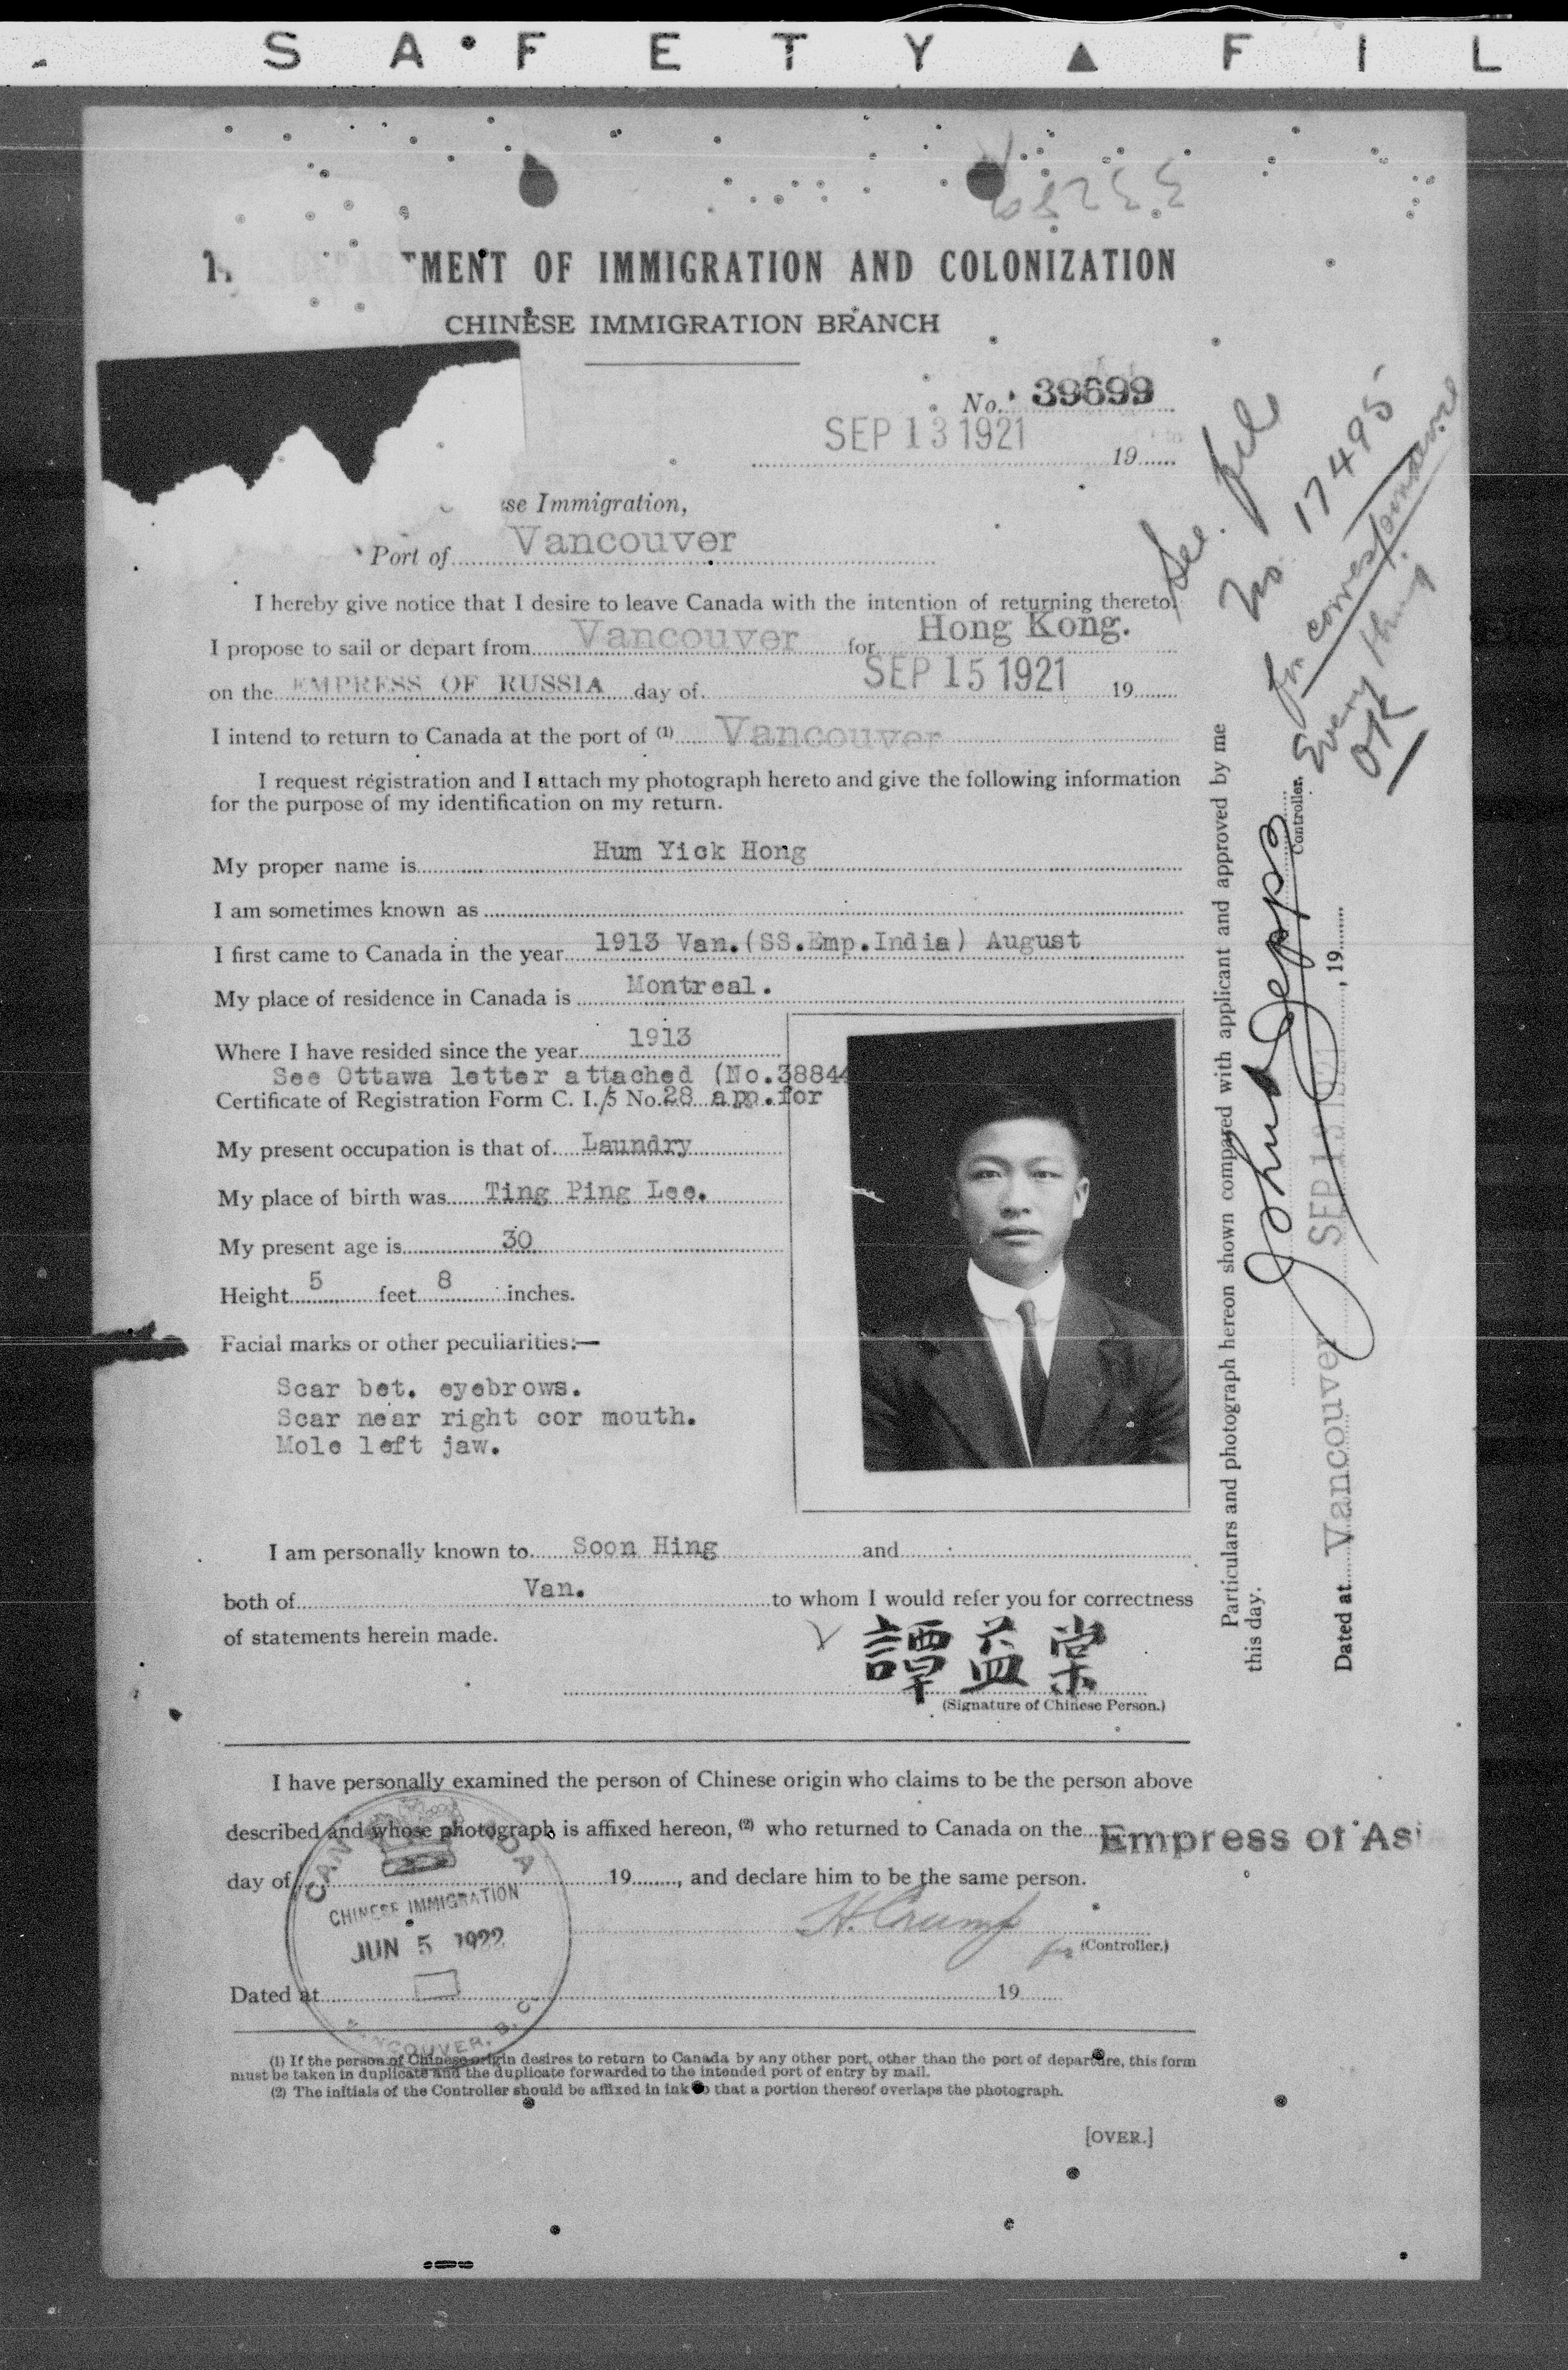 S A F E T Y ▲ F I L
MENT OF IMMIGRATION AND COLONIZATION
CHINESE IMMIGRATION BRANCH
No. 39699
SEP 13 1921 19
se Immigration,
Port of Vancouver
I hereby give notice that I desire to leave Canada with the intention of returning thereto.
I propose to sail or depart from Vancouver for Hong Kong.
on the EMPRESS OF RUSSIA day of SEP 15 1921 19
I intend to return to Canada at the port of (1) Vancouver
I request registration and I attach my photograph hereto and give the following information
for the purpose of my identification on my return.
My proper name is Hum Yick Hong
I am sometimes known as
I first came to Canada in the year 1913 Van.(SS.Emp.India) August
My place of residence in Canada is Montreal.
Where I have resided since the year 1913
See Ottawa letter attached (No.38844
Certificate of Registration Form C. I. 5 No. 28 app.for
My present occupation is that of Laundry
My place of birth was Ting Ping Lee.
My present age is 30
Height 5 feet 8 inches.
Facial marks or other peculiarities:—
Scar bet. eyebrows.
Scar near right cor mouth.
Mole left jaw.
I am personally known to Soon Hing and
both of Van. to whom I would refer you for correctness
of statements herein made.
譚益棠
(Signature of Chinese Person.)
I have personally examined the person of Chinese origin who claims to be the person above
described and whose photograph is affixed hereon, (2) who returned to Canada on the Empress of Asi
day of 19, and declare him to be the same person.
H. Crump
for (Controller.)
Dated at 19
CANADA
CHINESE IMMIGRATION
JUN 5 1922
VANCOUVER, B. C.
(1) If the person of Chinese origin desires to return to Canada by any other port, other than the port of departure, this form
must be taken in duplicate and the duplicate forwarded to the intended port of entry by mail.
(2) The initials of the Controller should be affixed in ink so that a portion thereof overlaps the photograph.
[OVER.]
See. file
No. 17495
for correspondence
Every thing
OK
Particulars and photograph hereon shown compared with applicant and approved by me
this day.
Controller.
Dated at Vancouver SEP 13 1921, 19